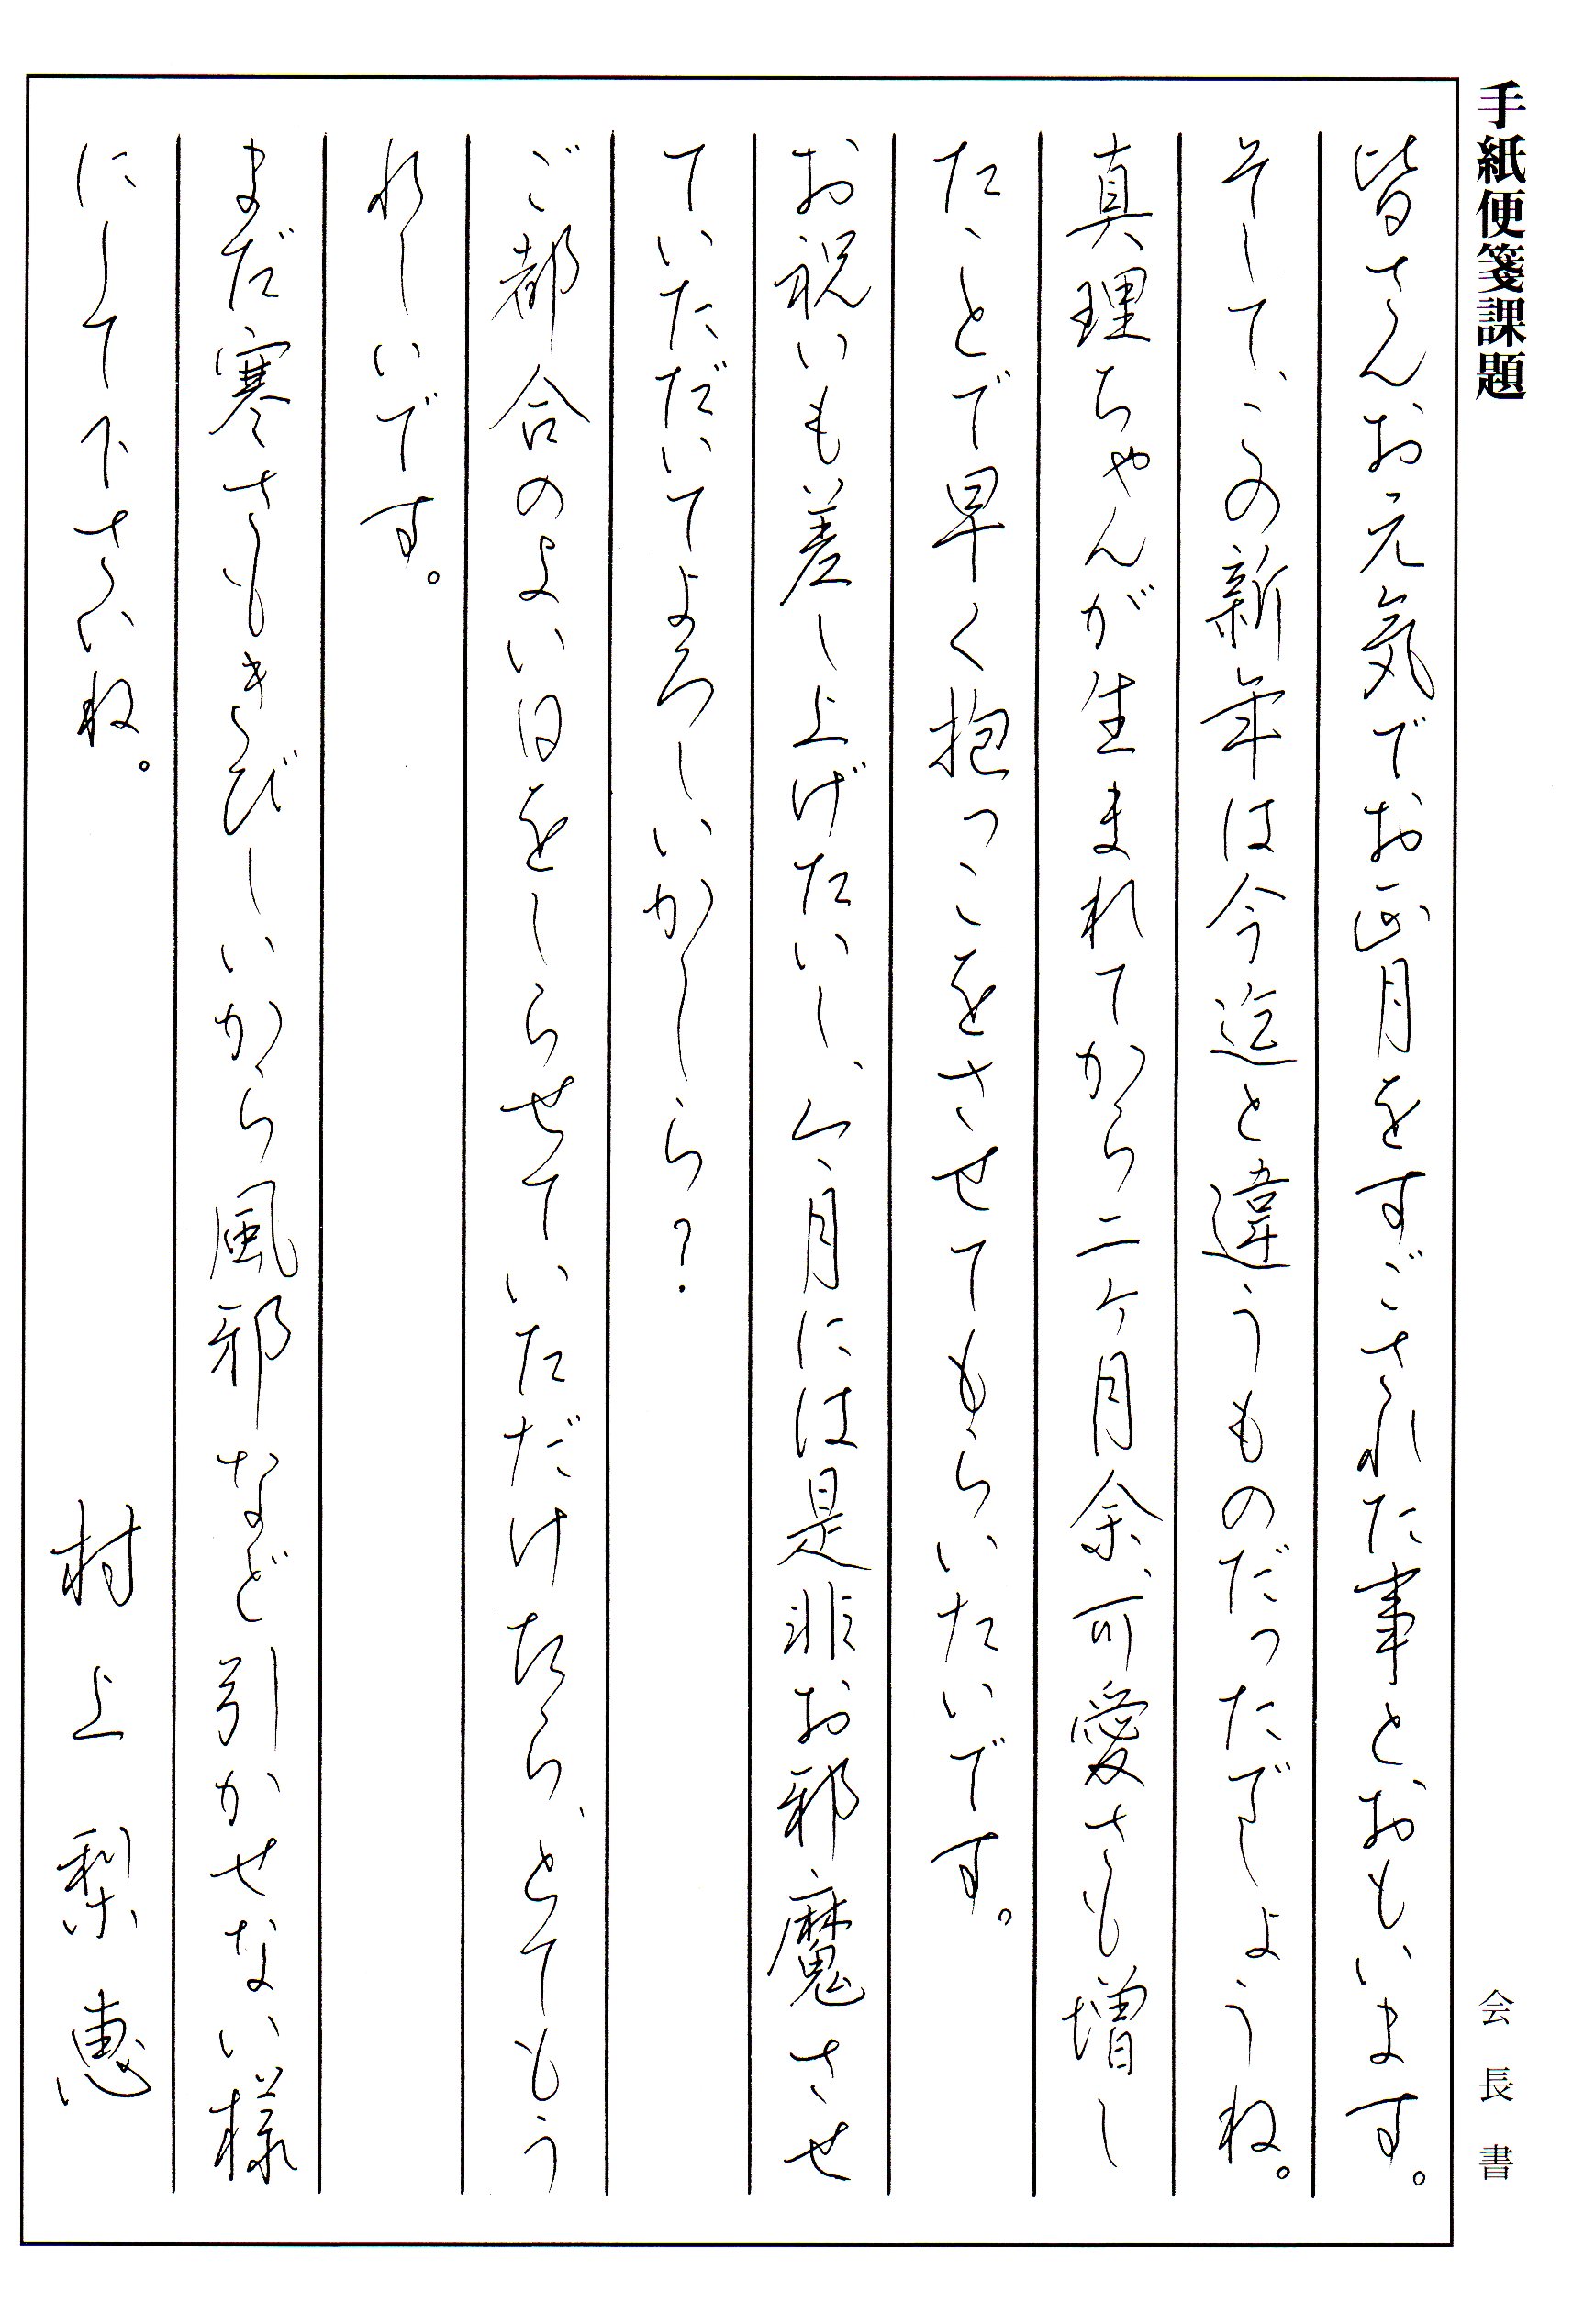 手紙便箋課題
会長書
皆さんお元気でお正月をすごされた事とおもいます。
そして、この新年は今迄と違うものだったでしょうね。
真理ちゃんが生まれてから二ヶ月余、可愛さも増し
たことで早く抱っこをさせてもらいたいです。
お祝いも差し上げたいし、今月には是非お邪魔させ
ていただいてよろしいかしら?
ご都合のよい日をしらせていただけたら、とてもう
れしいです。
まだ寒さもきびしいから風邪など引かせない様
にして下さいね。
村上梨恵